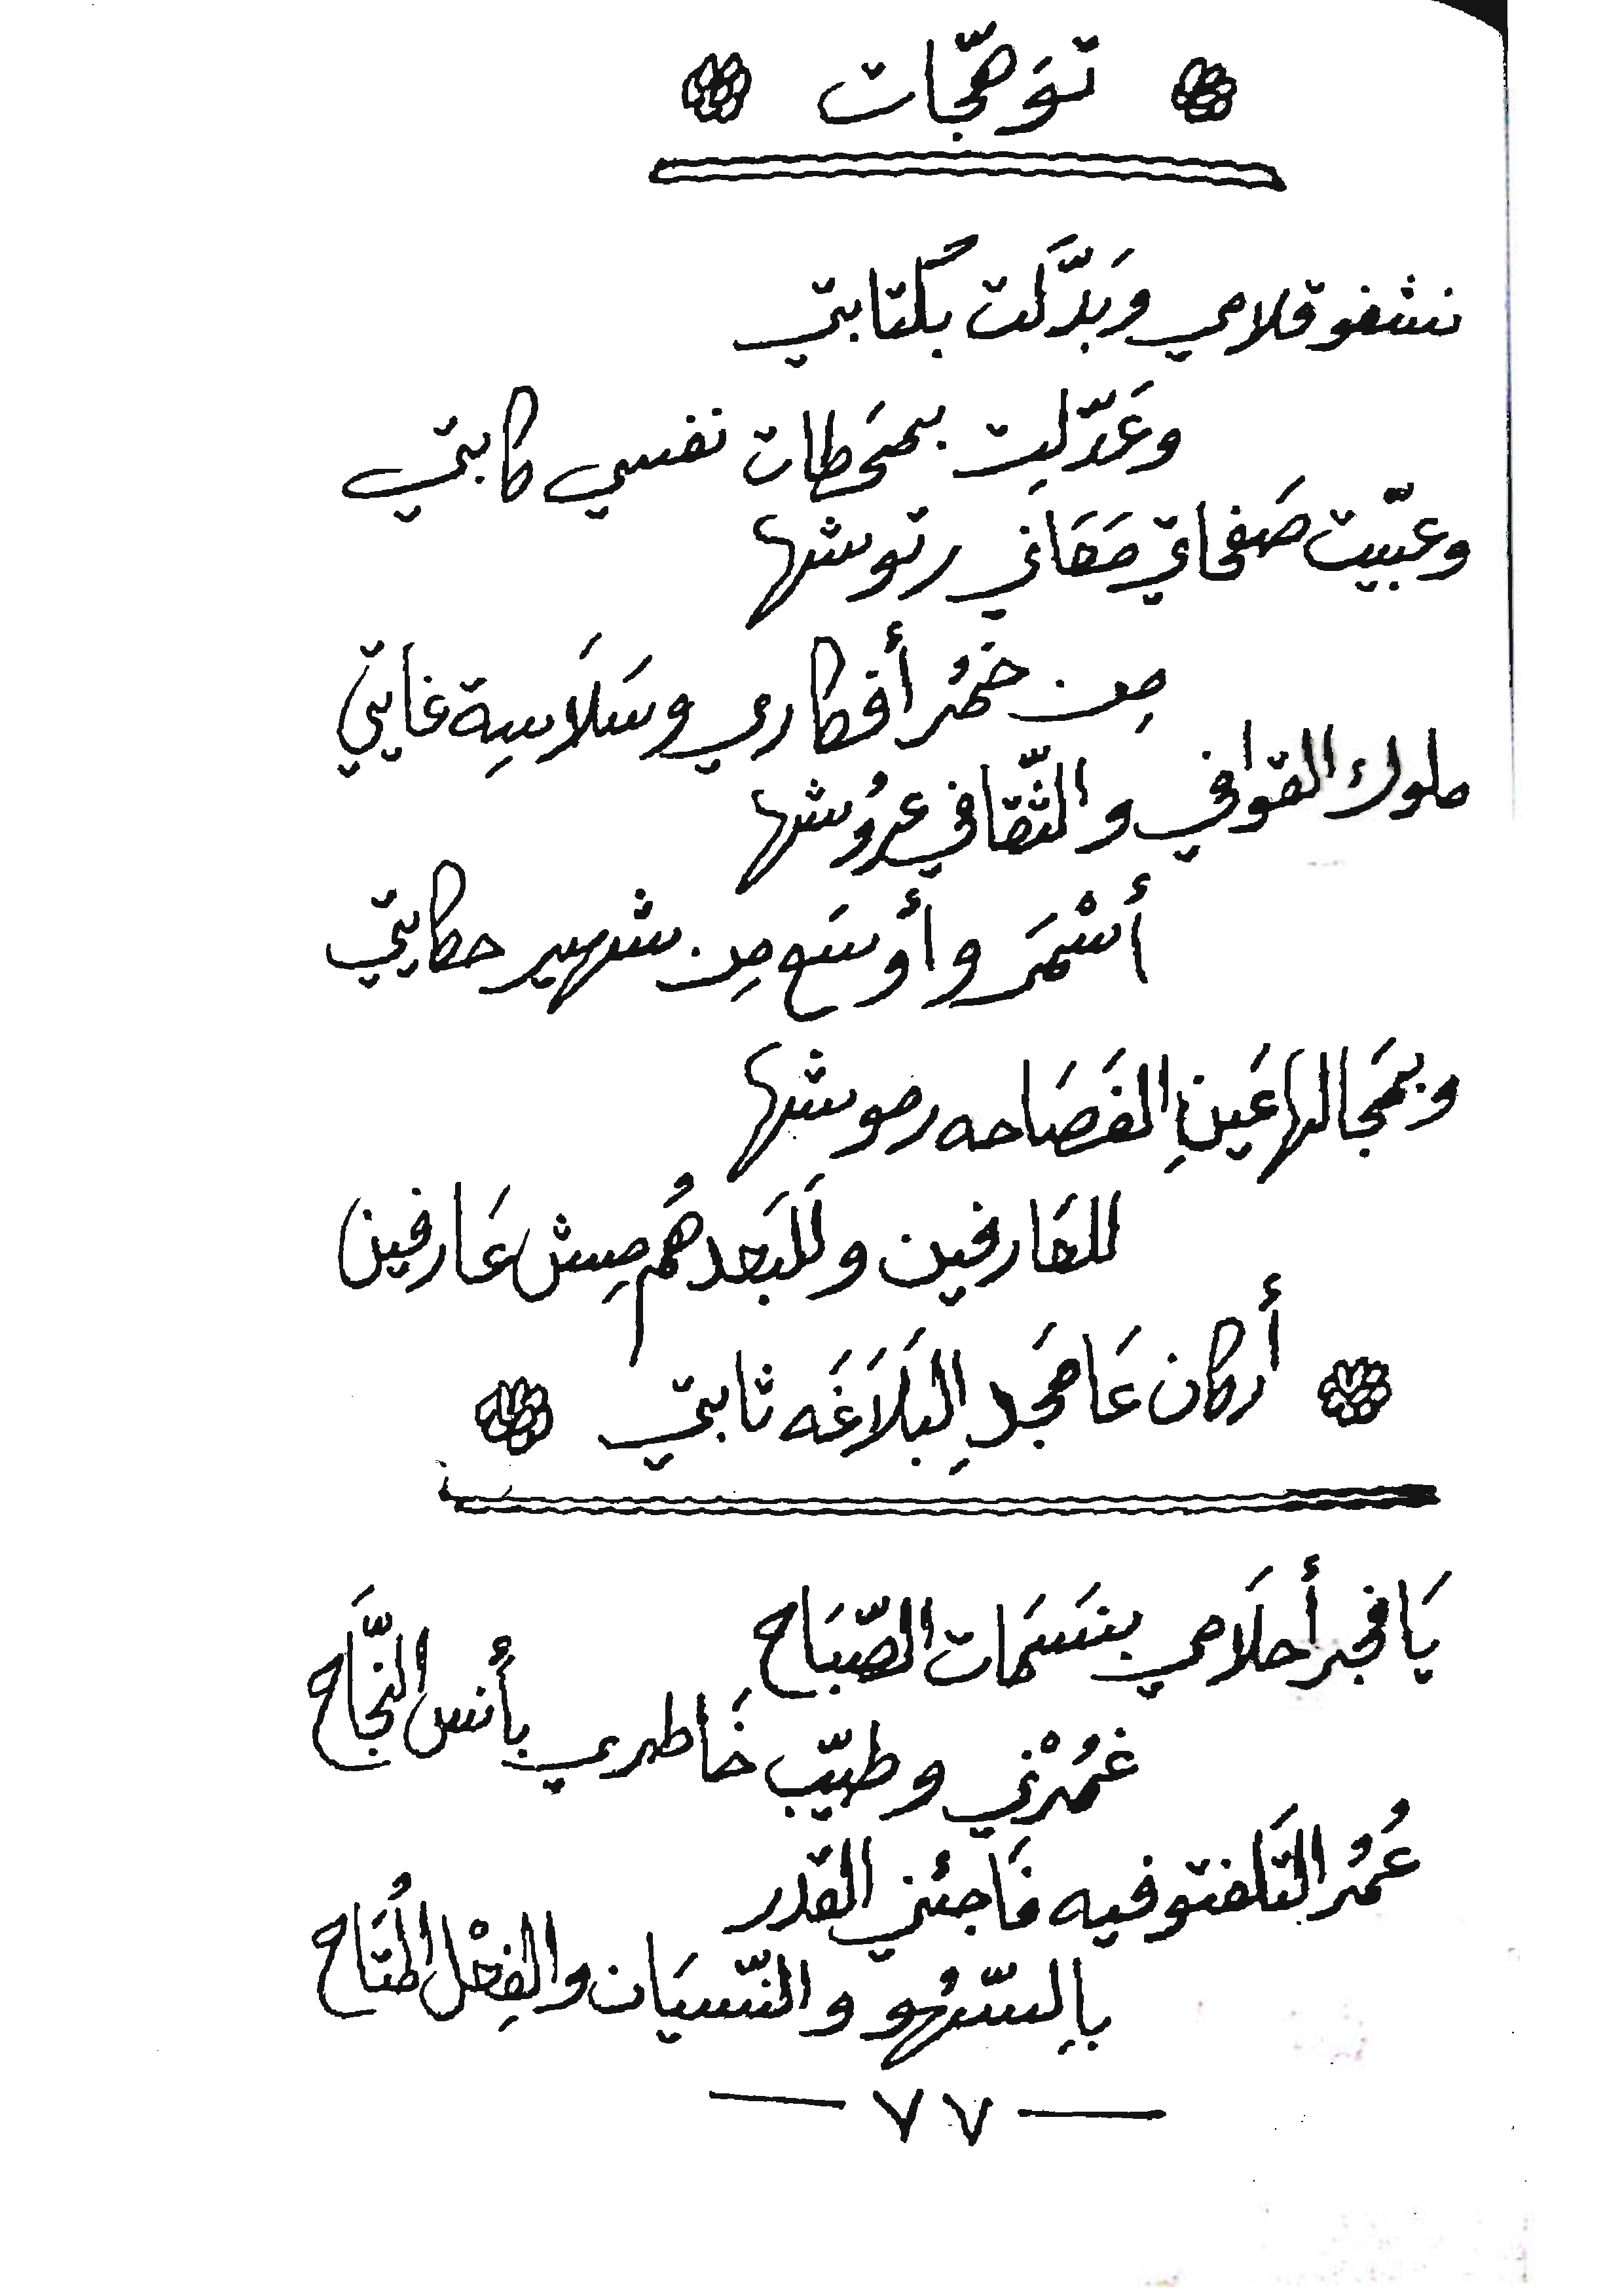 توهجّات
نشفو قلامي وبَدَّلت بكتابتي
وعَدّليت بمحَطات نفسي كابتي
وعبّيت صَفحاتي مَعَاني رتوشها
مِن خمُر أفكاري وسَلَاسِة غايتي
ملوك القوافي والثّقافي عروُشها
أسْمَر وأوسَع مِن شهير حكايتي
وبمَجالها عَينِ الفَصَاحه رموشها
للعَارفين ولَلبَعدهُم مِش عَارفين
أركان عَا مَجدِ البَلَاغَه ثابتي
يَا فجر أحلَامي بنسَمَات الصّبَاح
غمُرْني وطيّب خَاطري بأنس النجَّاح
عُمُر التَلفتو فيه فَاجئني القدر
بالِسّهُو والنّسيَان والفِعْل المُتَاح
— ٧٧ —